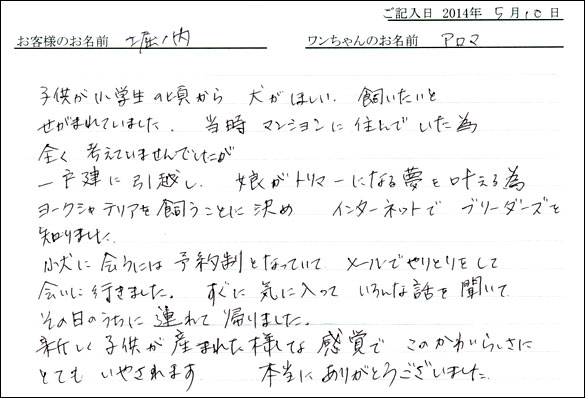 ご記入日 2014年 5月10日
お客様のお名前 堀ノ内 ワンちゃんのお名前 アロマ
子供が小学生の頃から 犬がほしい. 飼いたいと
せがまれていました. 当時 マンションに住んでいた為
全く 考えていませんでしたが
一戸建に引越し. 娘がトリマーになる夢を叶える為
ヨークシャテリアを飼うことに決め インターネットで ブリーダーズを
知りました.
小犬に会うには 予約制となっていて メールでやりとりをして
会いに行きました. すぐに気に入って いろんな話を聞いて
その日のうちに 連れて帰りました.
新しく子供が産まれた様な感覚で このかわいらしさに
とても いやされます 本当にありがとうございました.